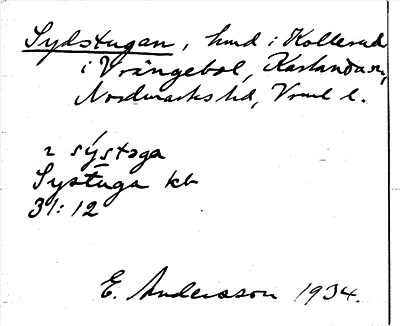 Sydstugan, hmd i Kollerud
i Vrängebol, Karlanda sn,
Nordmarks hd, Vrml l.
sýstoga
Systuga kb
31:12
E. Andersson 1934.